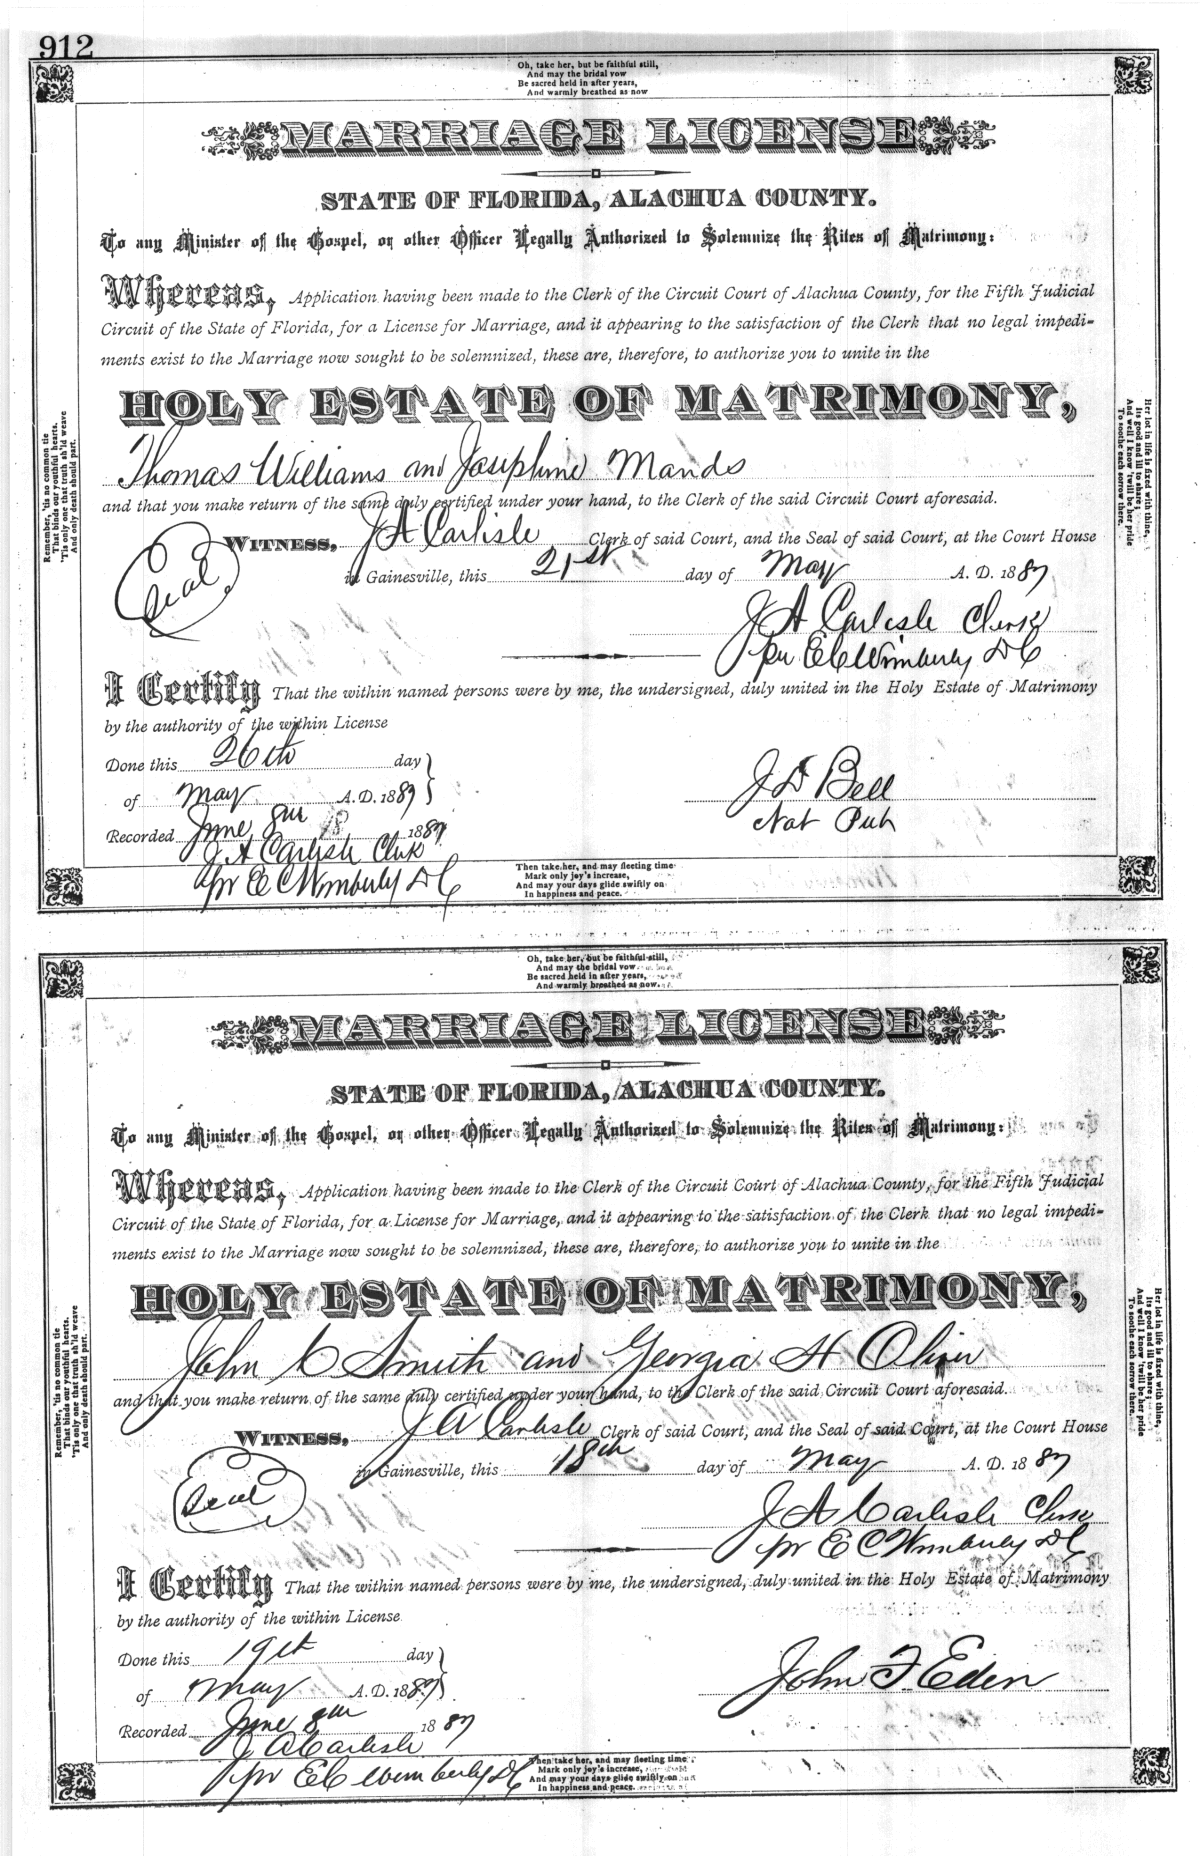 912
Oh, take her, but be faithful still,
And may the bridal vow
Be sacred held in after years,
And warmly breathed as now
MARRIAGE LICENSE
STATE OF FLORIDA, ALACHUA COUNTY.
To any Minister of the Gospel, or other Officer Legally Authorized to Solemnize the Rites of Matrimony:
Whereas, Application having been made to the Clerk of the Circuit Court of Alachua County, for the Fifth Judicial
Circuit of the State of Florida, for a License for Marriage, and it appearing to the satisfaction of the Clerk that no legal impedi-
ments exist to the Marriage now sought to be solemnized, these are, therefore, to authorize you to unite in the
HOLY ESTATE OF MATRIMONY,
Thomas Williams and Josephine Mands
and that you make return of the same duly certified under your hand, to the Clerk of the said Circuit Court aforesaid.
Seal
WITNESS, J A Carlisle Clerk of said Court, and the Seal of said Court, at the Court House
in Gainesville, this 21st day of May A. D. 1887
J A Carlisle Clerk
per E C Wimberly D C
I Certify That the within named persons were by me, the undersigned, duly united in the Holy Estate of Matrimony
by the authority of the within License
Done this 26th day
of May A. D. 1887
J D Bell
Not Pub
Recorded June 8th 1887
J. A Carlisle Clerk
per E C Wimberly D C
Remember, 'tis no common tie
That binds our youthful hearts.
'Tis only one that truth sh'ld weave
And only death should part.
Her lot in life is fixed with thine,
Its good and ill to share;
And well I know 'twill be her pride
To soothe each sorrow there.
Then take her, and may fleeting time
Mark only joy's increase,
And may your days glide swiftly on
In happiness and peace.
Oh, take her, but be faithful still,
And may the bridal vow
Be sacred held in after years,
And warmly breathed as now.
MARRIAGE LICENSE
STATE OF FLORIDA, ALACHUA COUNTY.
To any Minister of the Gospel, or other Officer Legally Authorized to Solemnize the Rites of Matrimony:
Whereas, Application having been made to the Clerk of the Circuit Court of Alachua County, for the Fifth Judicial
Circuit of the State of Florida, for a License for Marriage, and it appearing to the satisfaction of the Clerk that no legal impedi-
ments exist to the Marriage now sought to be solemnized, these are, therefore, to authorize you to unite in the
HOLY ESTATE OF MATRIMONY,
John C Smith and Georgia H Oliver
and that you make return of the same duly certified under your hand, to the Clerk of the said Circuit Court aforesaid.
Seal
WITNESS, J A Carlisle Clerk of said Court, and the Seal of said Court, at the Court House
in Gainesville, this 18th day of May A. D. 1887
J A Carlisle Clerk
pr E C Wimberly D C
I Certify That the within named persons were by me, the undersigned, duly united in the Holy Estate of Matrimony
by the authority of the within License
Done this 19th day
of May A. D. 1887
John F. Eden
Recorded June 8th 1887
J A Carlisle
pr E C Wimberly D C
Remember, 'tis no common tie
That binds our youthful hearts.
'Tis only one that truth sh'ld weave
And only death should part.
Her lot in life is fixed with thine,
Its good and ill to share;
And well I know 'twill be her pride
To soothe each sorrow there.
Then take her, and may fleeting time
Mark only joy's increase,
And may your days glide swiftly on
In happiness and peace.